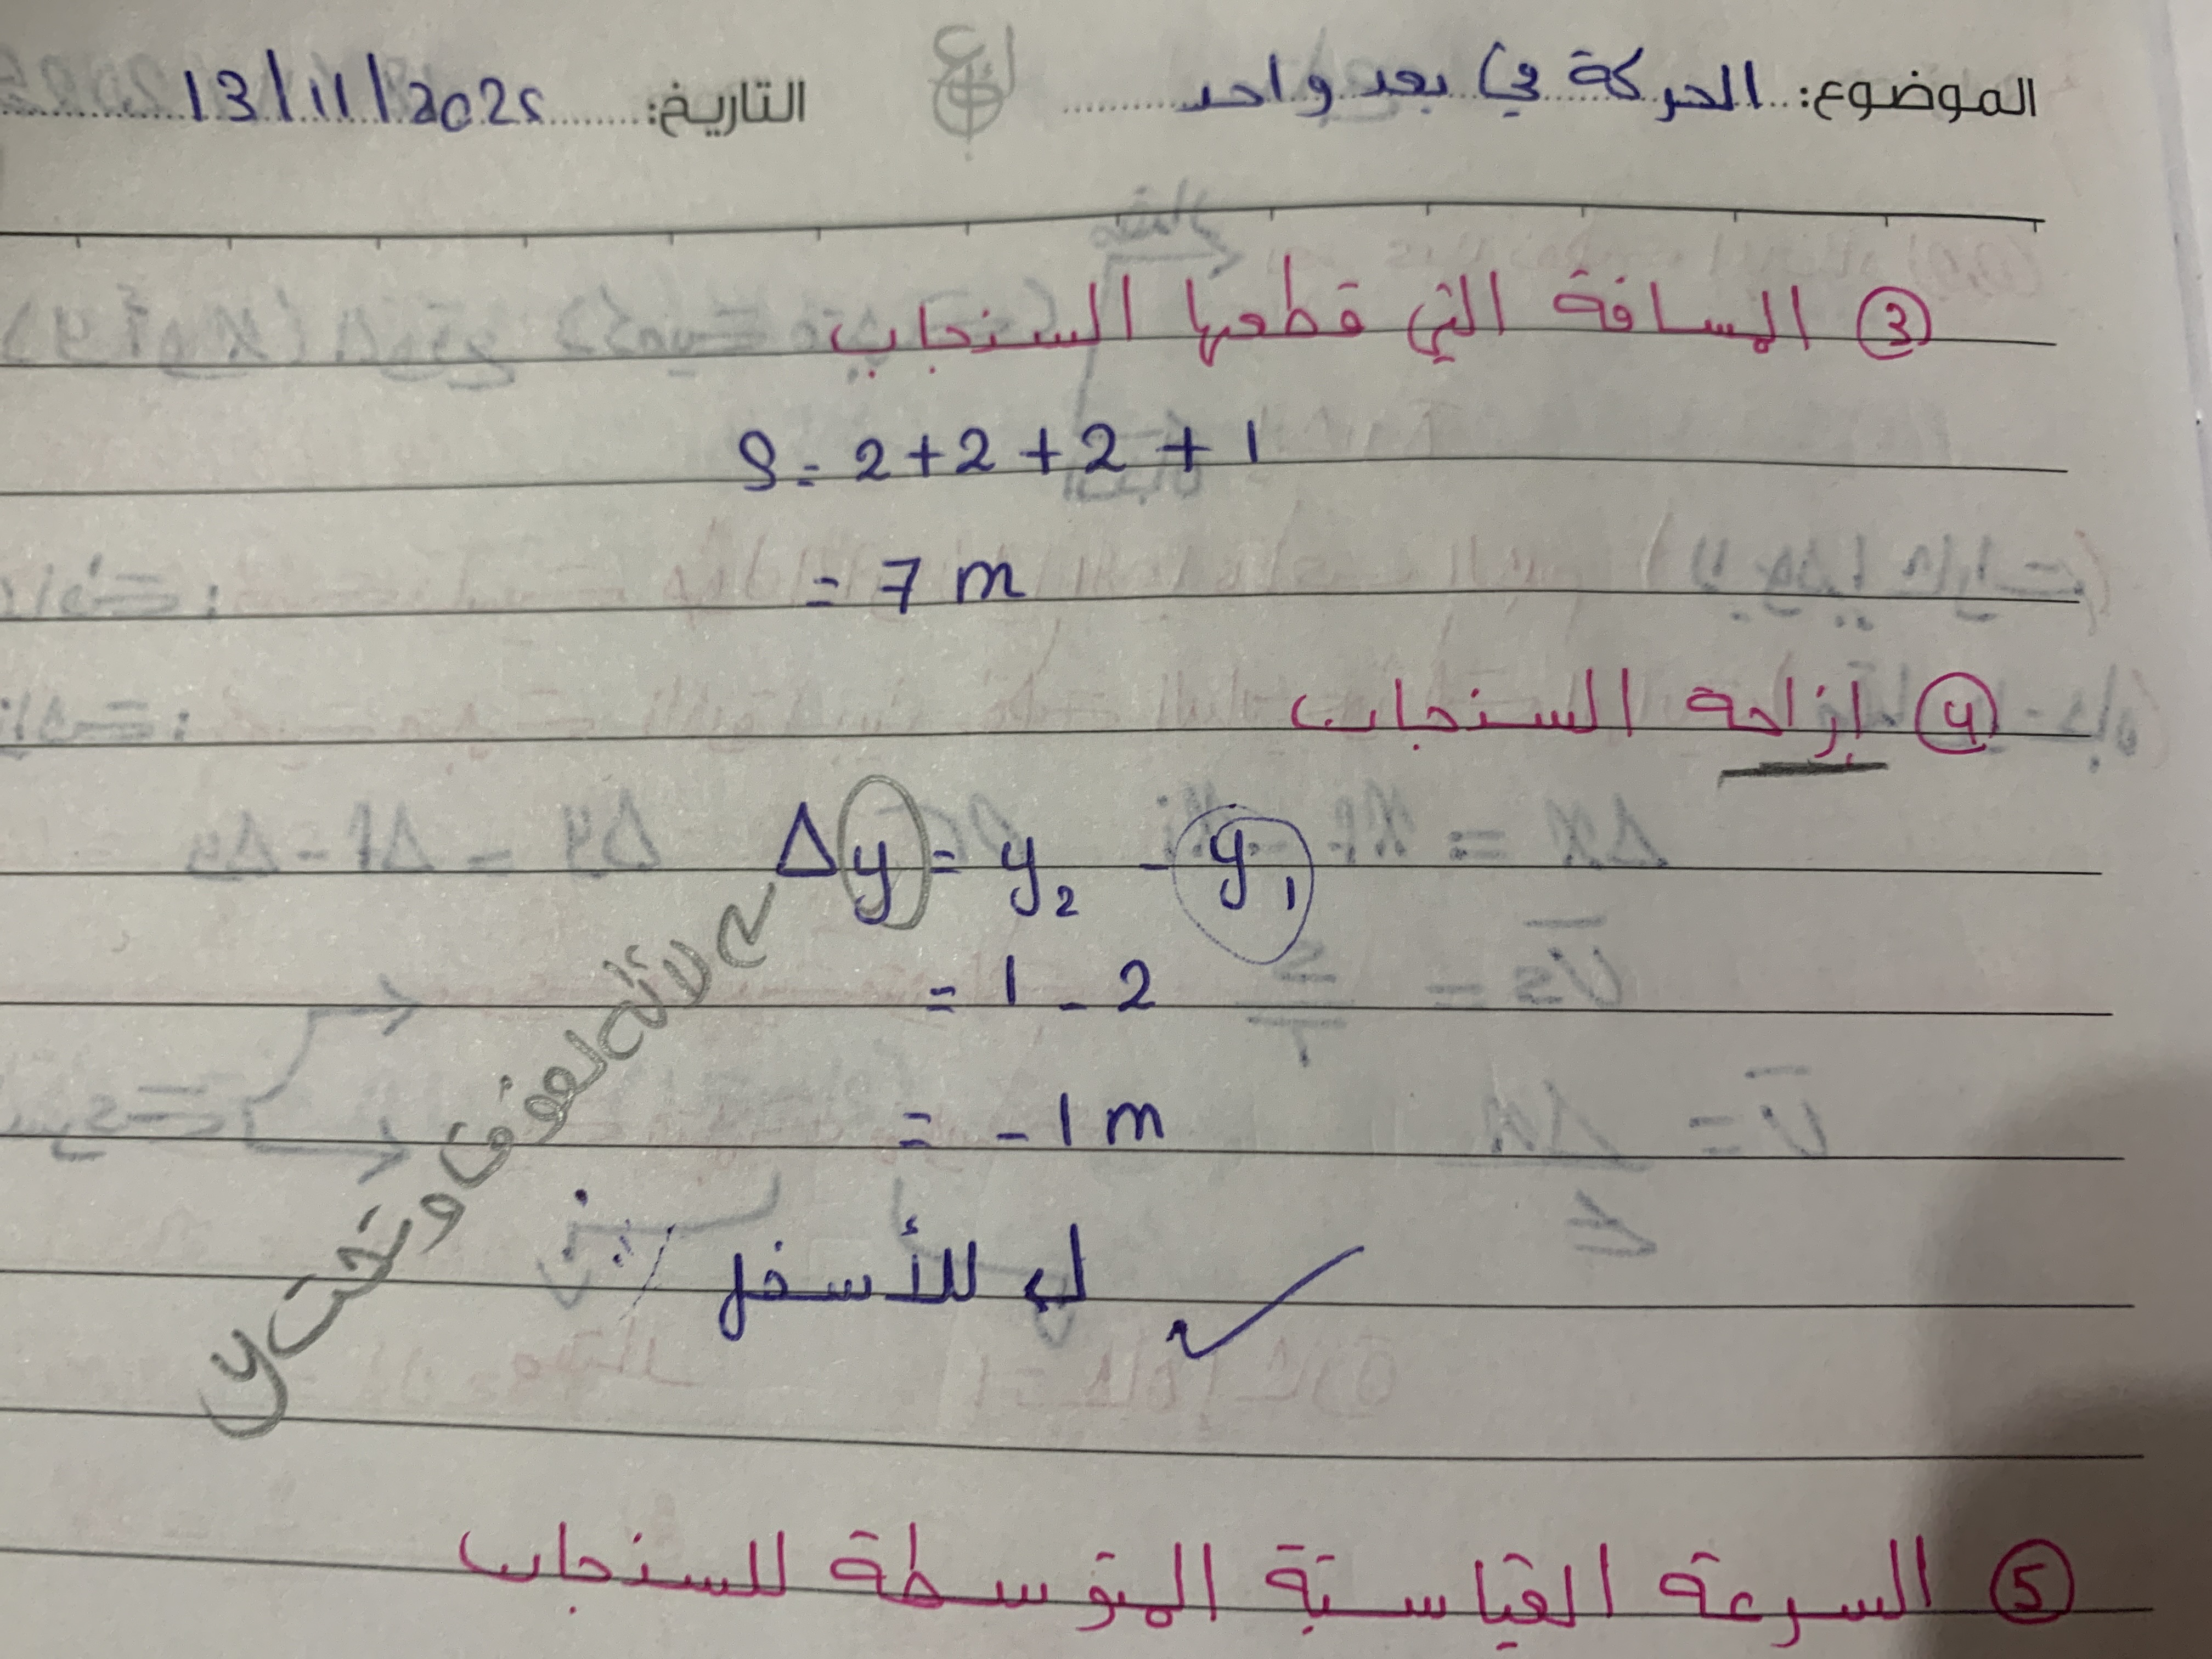 الموضوع: الحركة في بعد واحد التاريخ: 13/11/2025
③ المسافة التي قطعها السنجاب
S = 2 + 2 + 2 + 1
= 7 m
④ إزاحة السنجاب
Δy = y₂ - y₁
= 1 - 2
= - 1 m
للأسفل
لأنه لفوق وتحت y
⑤ السرعة القياسية المتوسطة للسنجاب